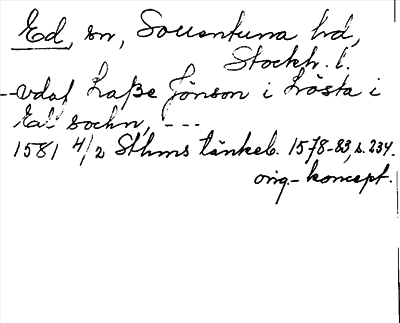 Ed, sn, Sollentuna hd,
Stockh. l.
--vdaf Laße Jönson i Lösta i
Ed sochn, ---
1581 4/2 Sthms tänkeb. 1578-83, s. 234.
orig.-koncept.